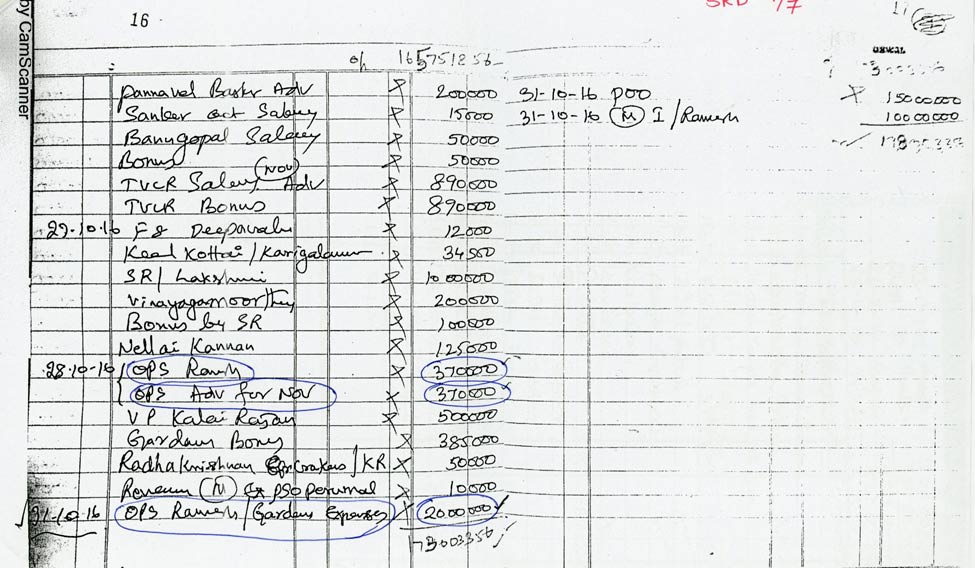 by CamScanner
16
SRD 77
OSWAL
o/h 165751256
Pannavel Baskr Adv X 200000 31-10-16 POO X 15000000
Sanker oct Salary X 15000 31-10-16 (M) I/Ramesh 10000000
Banugopal Salary X 50000
Bonus X 50000
TVCR Salary (NOV) Adv X 890000
TVCR Bonus X 890000
29-10-16 F& Deepavali X 12000
Keel Kottai/Karigalamm X 34500
SR/ Lakshmi X 1000000
Vinayagamoorthy X 200000
Bonus by SR X 100000
Nellai Kannan X 125000
28-10-16 OPS Ramesh X 370000
OPS Adv for NOV X 370000
V P Kalai Rajan X 500000
Gardens Bonus X 385000
Radhakrishnan for Crakers / KR X 50000
(M) PSO Perumal X 10000
21-10-16 OPS Ramesh/Gardens Expenses X 2000000
173003356